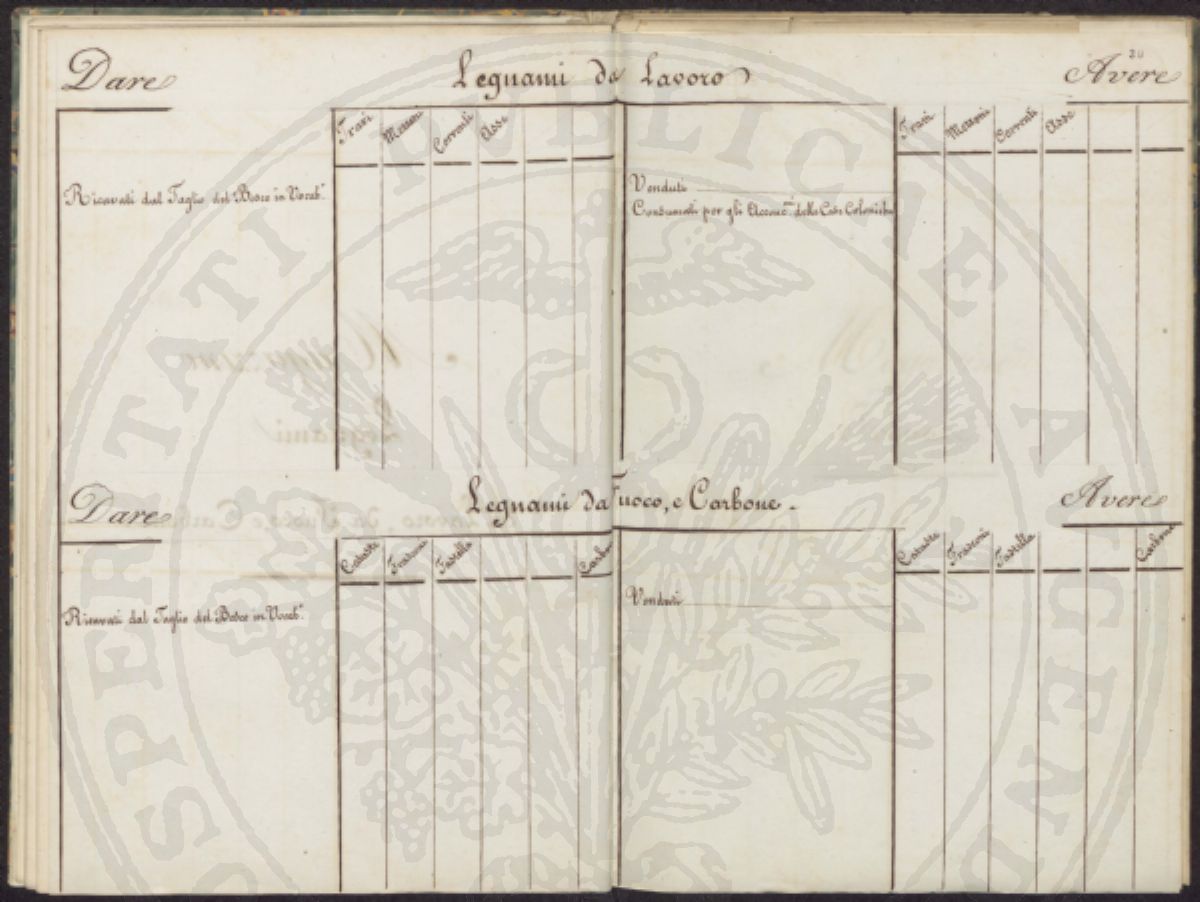 20
Dare Legnami da Lavoro Avere
Travi Morroni Correnti Asse
Travi Morroni Correnti Asse
Ricavati dal Taglio del Bosco in Vocab.
Venduti
Consumati per gli Acconc. delle Case Coloniche
Dare Legnami da Fuoco, e Carbone. Avere
Cataste Frasconi Fastella Carbone
Cataste Frasconi Fastella Carbone
Ricavati dal Taglio del Bosco in Vocab.
Venduti
PROSPERITATI PUBLICAE AUGENDAE